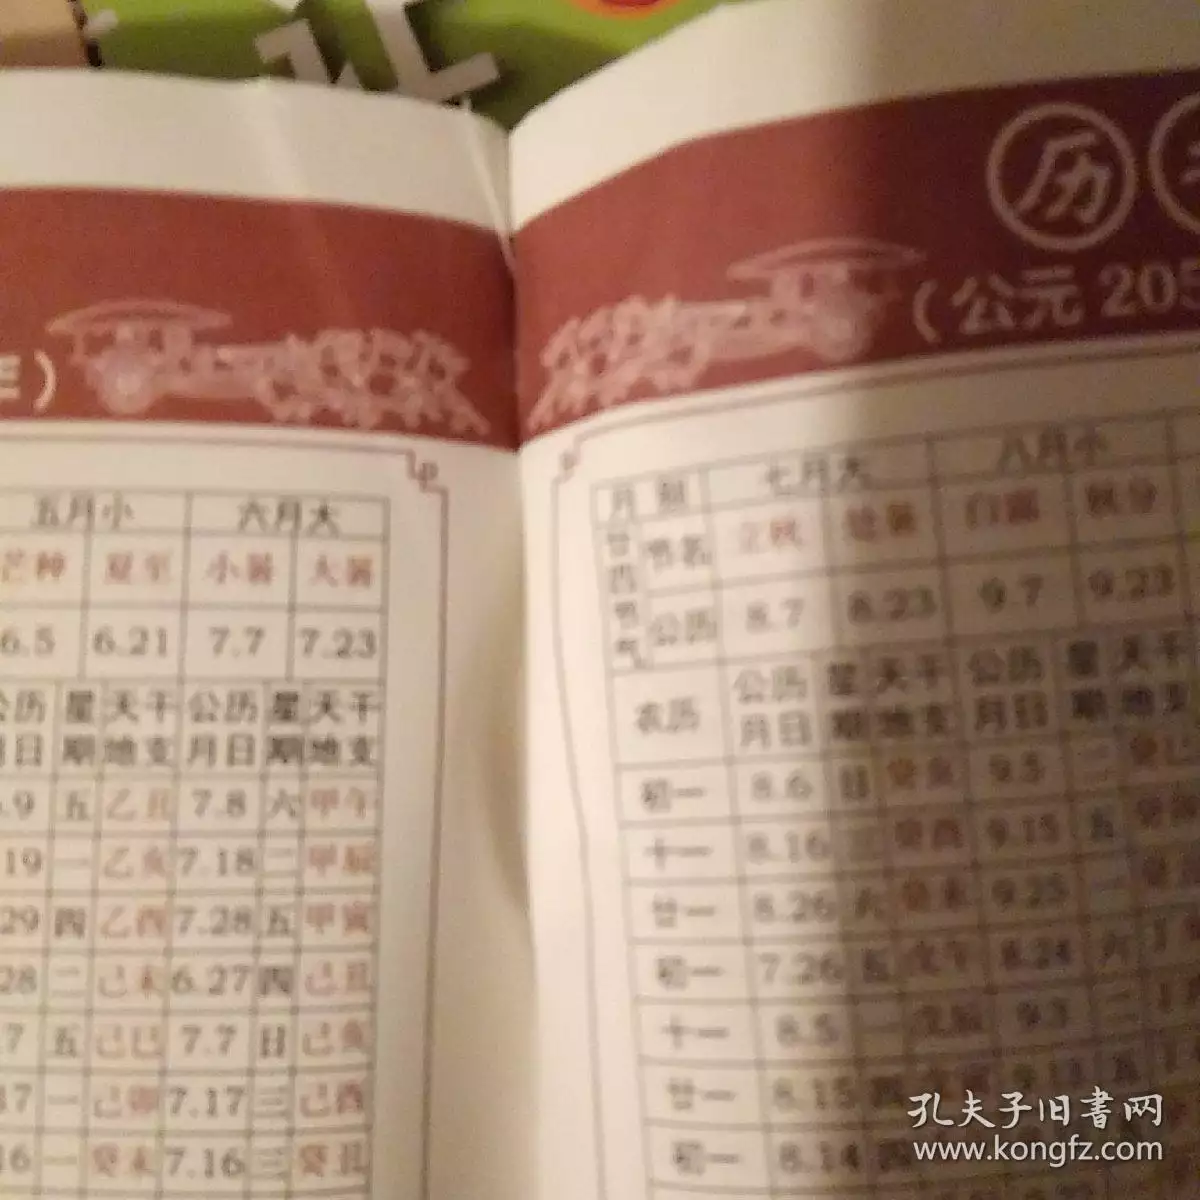 历
(公元 205
年)
五月小 六月大
芒种 夏至 小暑 大暑
6.5 6.21 7.7 7.23
公历 星 天干 公历 星 天干
月日 期 地支 月日 期 地支
.9 五 乙丑 7.8 六 甲午
19 一 乙亥 7.18 二 甲辰
29 四 乙酉 7.28 五 甲寅
28 二 己未 6.27 四 己丑
.7 五 己巳 7.7 日 己亥
17 一 己卯 7.17 三 己酉
16 一 癸未 7.16 三 癸丑
月别 七月大 八月小
廿四节气 节名 立秋 处暑 白露 秋分
公历 8.7 8.23 9.7 9.23
农历 公历 星 天干 公历 星 天干
月日 期 地支 月日 期 地支
初一 8.6 日 癸亥 9.5 二 癸巳
十一 8.16 三 癸酉 9.15 五 癸卯
廿一 8.26 六 癸未 9.25 一 癸丑
初一 7.26 五 戊午 8.24 六 丁
十一 8.5 一 戊辰 9.3 二 丁
廿一 8.15 四 9.13 五
初一 8.14 四
孔夫子旧書网
www.kongfz.com